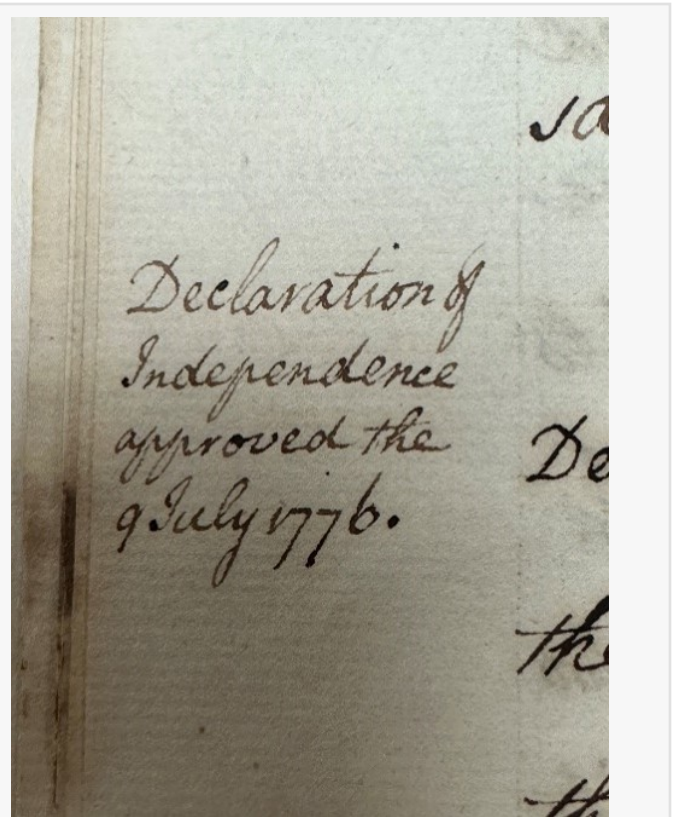 sa
Declaration of
Independence
approved the
9 July 1776.
De
the
th